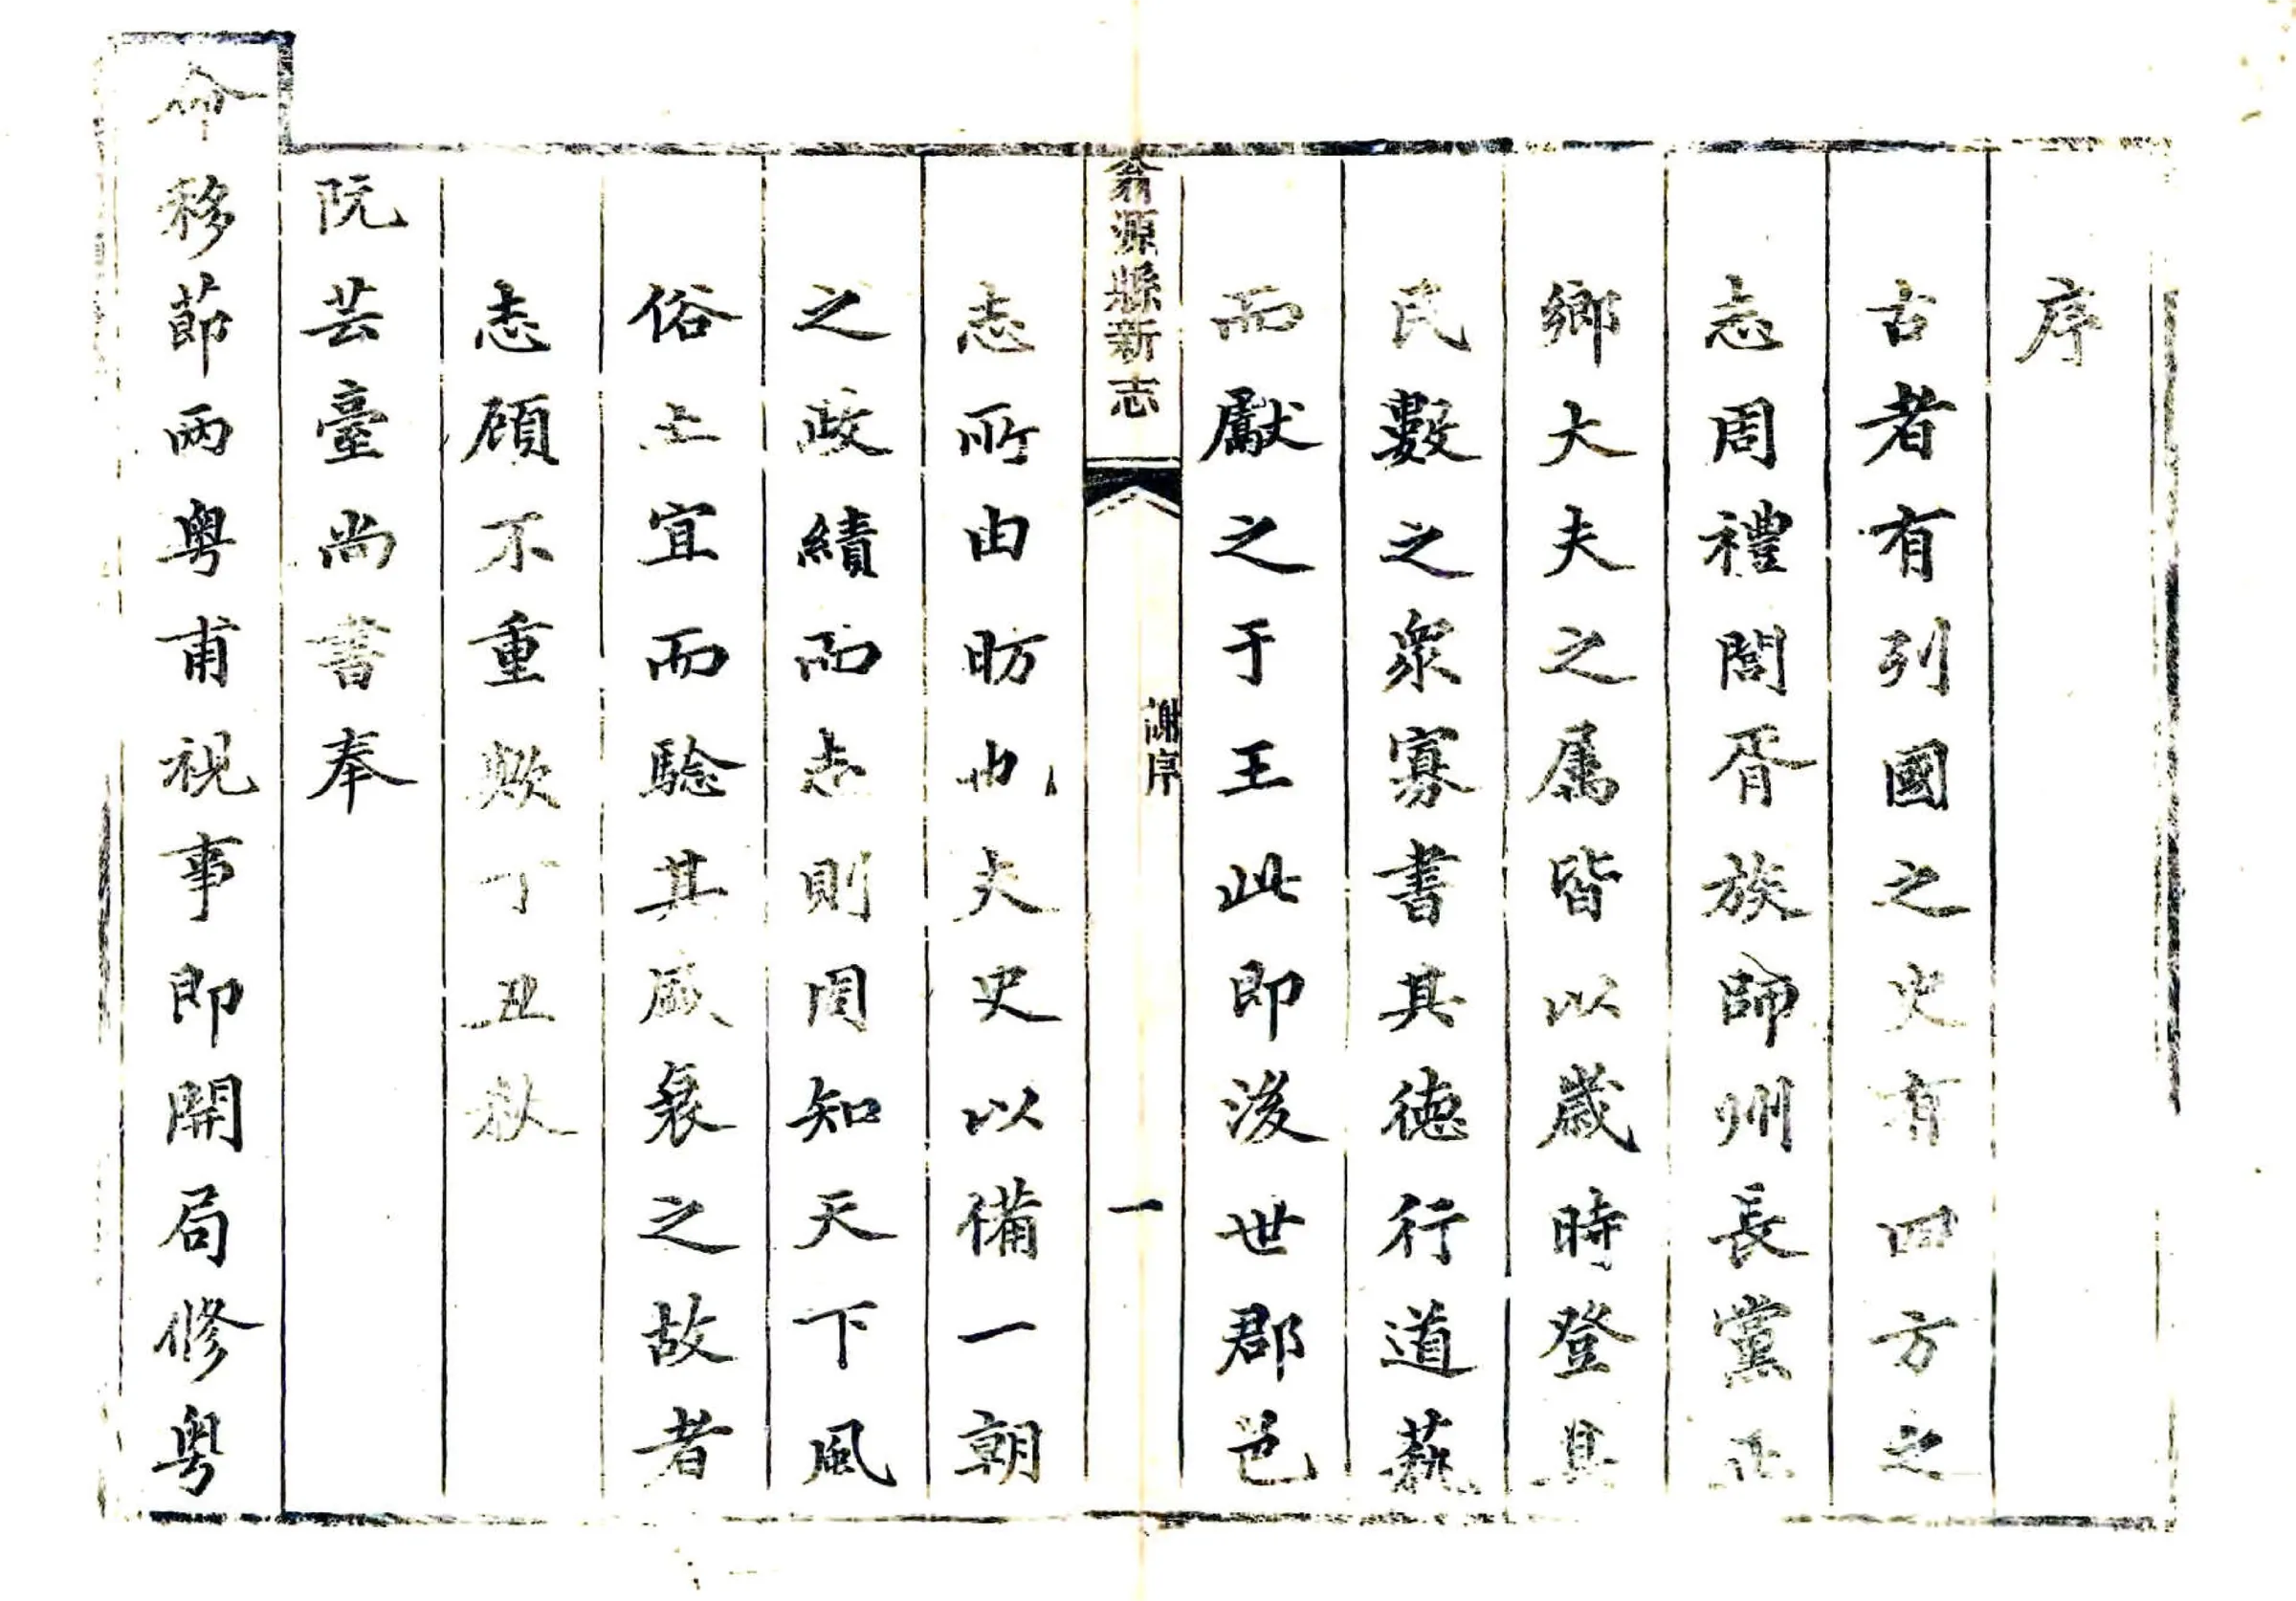 序
古者有列國之史有四方之
志周禮閭胥族師州長黨正
鄉大夫之属皆以歲時登其
民數之衆寡書其德行道藝
而獻之于王此即後世郡邑
翁源縣新志
謝序
一
志所由昉也夫史以備一朝
之政績而志則周知天下風
俗土宜而騐其盛衰之故者
志顧不重歟丁丑秋
阮芸臺尚書奉
命移節兩粤甫視事即開局修粤